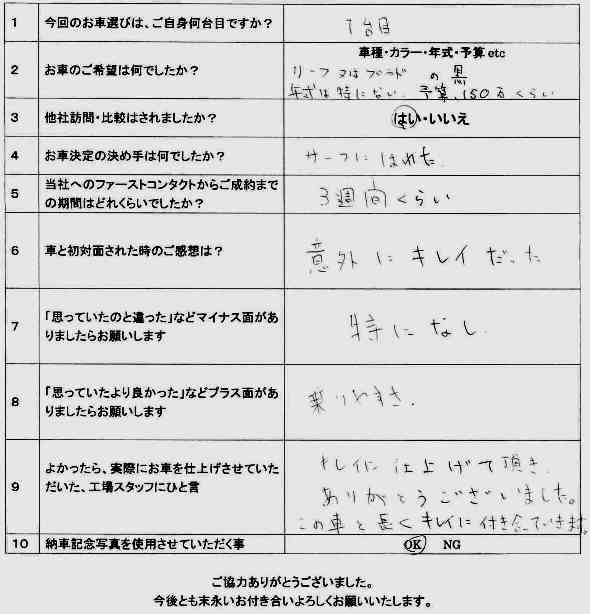 1 今回のお車選びは、ご自身何台目ですか？ 1台目
車種・カラー・年式・予算 etc
2 お車のご希望は何でしたか？ サーフ又はプラド の黒
年式は特にない。予算、150万くらい
3 他社訪問・比較はされましたか？ はい・いいえ
4 お車決定の決め手は何でしたか？ サーフにほれた。
5 当社へのファーストコンタクトからご成約まで
の期間はどれくらいでしたか？ 3週間くらい
6 車と初対面された時のご感想は？ 意外にキレイだった
7 「思っていたのと違った」などマイナス面があ
りましたらお願いします 特になし。
8 「思っていたより良かった」などプラス面があ
りましたらお願いします 乗りやすさ。
9 よかったら、実際にお車を仕上げさせていた
だいた、工場スタッフにひと言
キレイに仕上げて頂き、
ありがとうございました。
この車と長くキレイに付き合っていきます。
10 納車記念写真を使用させていただく事 OK NG
ご協力ありがとうございました。
今後とも末永いお付き合いよろしくお願いいたします。